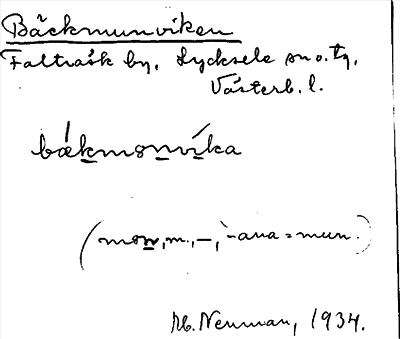 Bäckmunviken
Falträsk by, Lycksele sn o. tg,
Västerb. l.
bǽkmonvíka
(mon, m., –, `-ana = mun.)
M. Neuman, 1934.